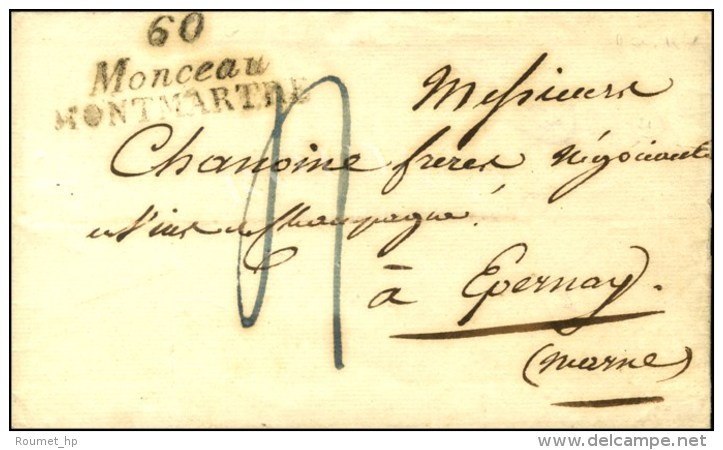 60
Monceau
MONTMARTRE
Messieurs
Chanoine frères négociants
en Vins de Champagne
à Epernay.
(Marne)
4
Roumet_hp
delcampe.net